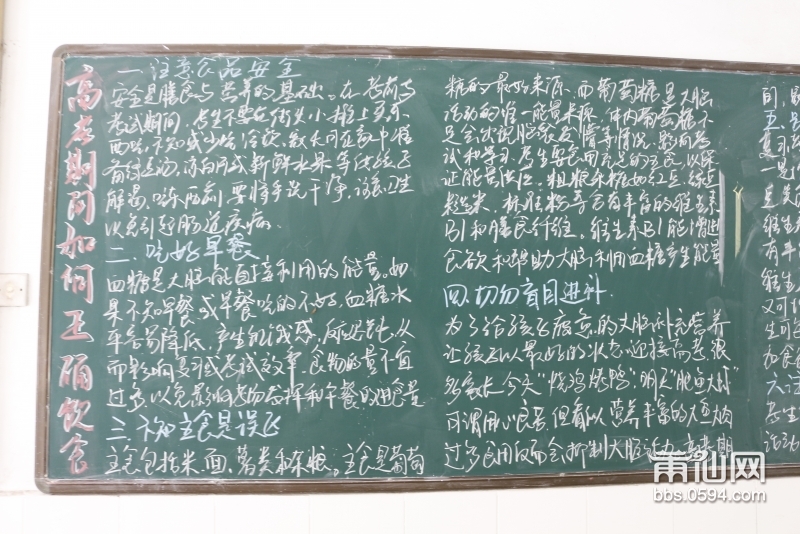 高考期间如何正确饮食
一、注意食品安全
安全是膳食与营养的基础。在考前与
考试期间,考生不要在街头小摊上买东
西吃,不吃或少吃冷饮,数天可在家中准
备绿豆汤,凉白开或新鲜水果等供给
解暑。吃东西前,要将手洗干净,注意卫生
以免引起肠道疾病。
二、吃好早餐
血糖是大脑能直接利用的能量。如
果不吃早餐或早餐吃的不好,血糖水
平容易降低,产生饥饿感,反应迟钝,从
而影响复习或考试效率。食物的量不宜
过多以免影响食物选择和午餐的进食量
三、不吃主食是误区
主食包括米、面、薯类和杂粮。主食是葡萄
糖的最好来源,而葡萄糖是大脑
活动的唯一能量来源,体内葡萄糖不
足会出现脑疲劳
试和学习,考生要食用充足的主食,以保
证能量供给。粗粮杂粮如红豆、绿豆
糙米、标准粉等含有丰富的维生素
B1和膳食纤维。维生素B1能促进
食欲和帮助大脑利用血糖产生能量
四、切勿盲目进补
为了给孩子疲惫的大脑补充营养
让孩子以最好的状态迎接高考,很
多家长今天“烧鸡烧鸭”明天“肥鱼大虾”
可谓用心良苦,但看似营养丰富的大鱼大肉
过多食用反而会抑制大脑活力,高考期
间,
五、
复习
一是
是
维生
有丰
维生
又可
生可
加食
六、
考生
活动
莆仙网
bbs.0594.com